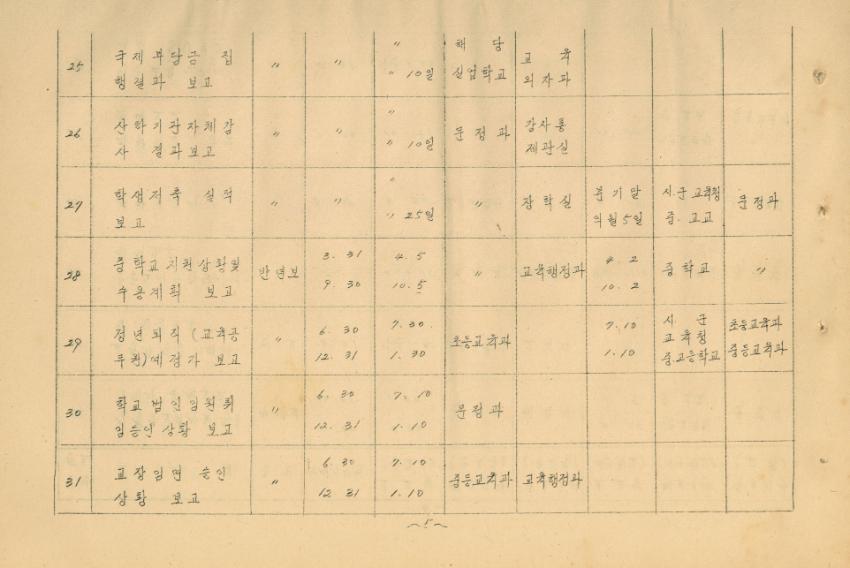 25 국제부담금 집 〃 〃 〃 해 당 교 육
행결과 보고 〃 10일 실업학교 외자과
26 산학기관자체감 〃 〃 〃 문정과 감사통
사 결과보고 〃 10일 제관실
27 학생저축 실적 〃 〃 〃 〃 장학실 분기말 시.군교육청 문정과
보고 〃 25일 익월5일 중.고교
28 중학교 지원상황및 반년보 3.31 4.5 〃 교육행정과 4.2 중학교 〃
수용계획 보고 9.30 10.5 10.2
29 정년퇴직(교육공 〃 6.30 7.30. 초등교육과 7.10 시 군 초등교육과
교육청
무원)예정자 보고 12.31 1.30 1.10 중.고등학교 중등교육과
30 학교법인임원취 〃 6.30 7.10 문정과
임승인상황 보고 12.31 1.10
31 교장임면 승인 〃 6.30 7.10 중등교육과 교육행정과
상황 보고 12.31 1.10
~5~